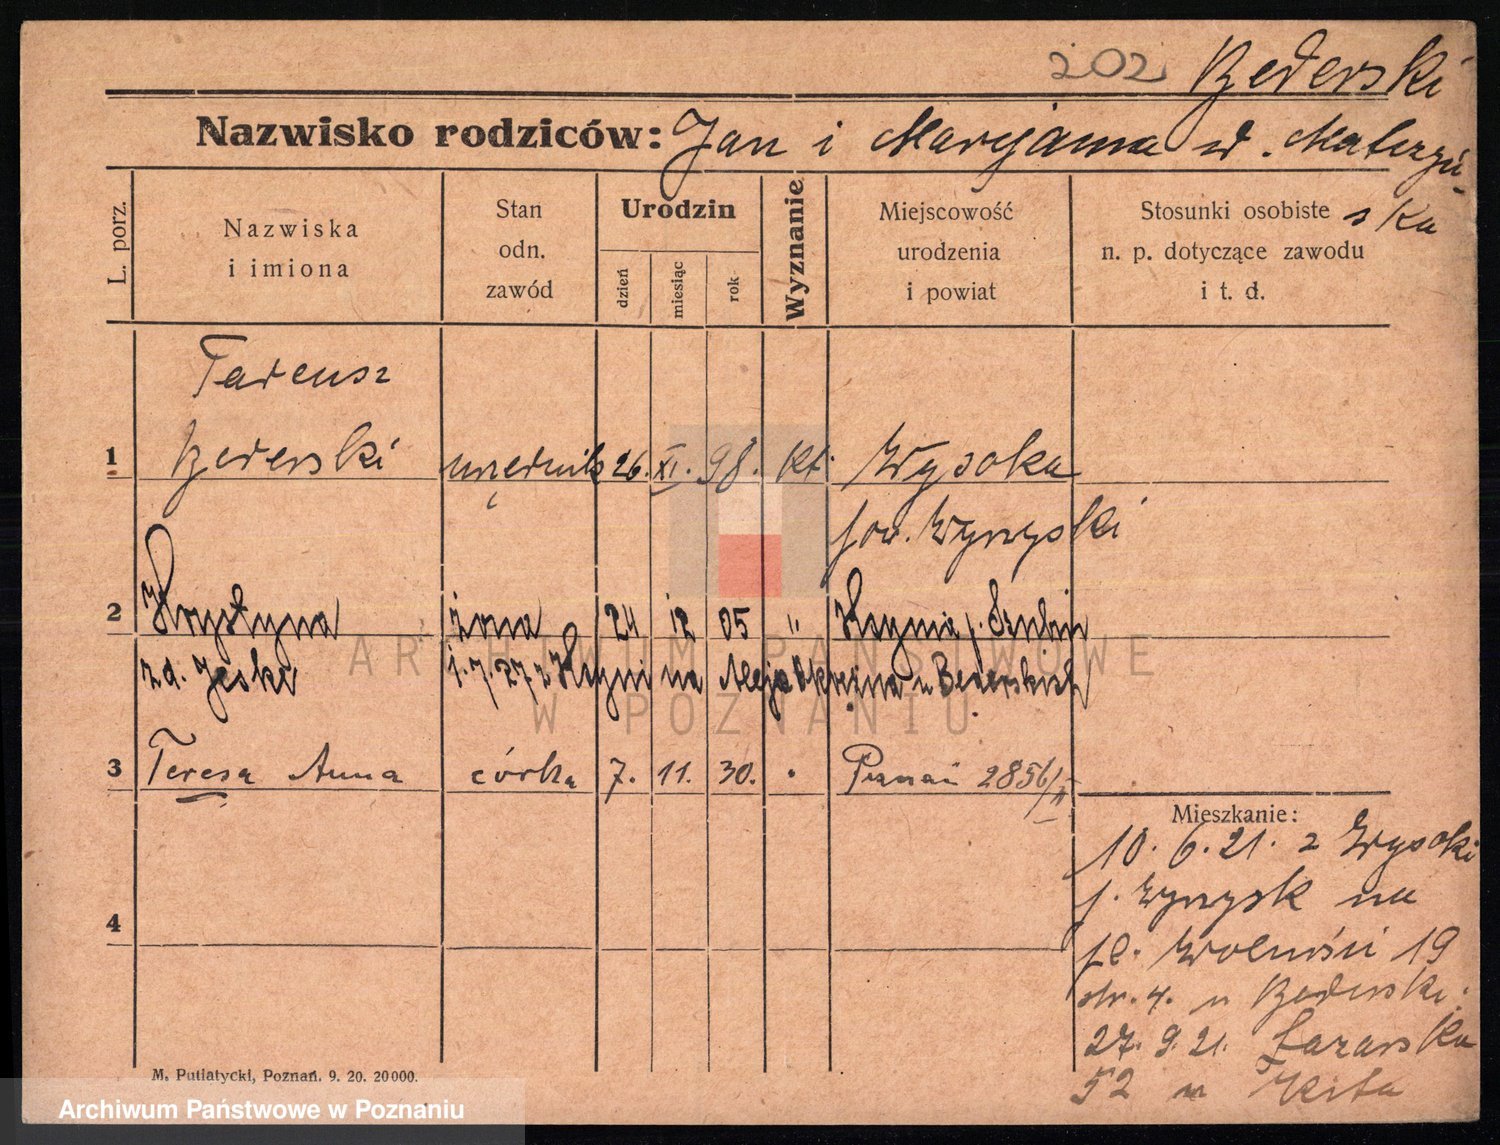 202 Bederski
Nazwisko rodziców: Jan i Maryanna d. Matuszyń-
ska
L. porz.
Nazwiska
i imiona
Stan
odn.
zawód
Urodzin
dzień
miesiąc
rok
Wyznanie
Miejscowość
urodzenia
i powiat
Stosunki osobiste
n. p. dotyczące zawodu
i t. d.
Tadeusz
1 Bederski urzędnik 26. XI. 98. kt. Wysoka
pow. Wyrzyski
2 Krystyna żona 24 12 05 " Kcynia p. Szubin
z d. Jeske 1.7.27 z Kcyni na Aleja Okrężna u Bederskich
3 Teresa Anna córka 7. 11. 30. " Poznań 2856/II
Mieszkanie:
10. 6. 21. z Wysoki
p. Wyrzysk na
pl. Wolności 19
str. 4. u Bederski.
27. 9. 21. Łazarska
52 u
4
M. Putiatycki, Poznań. 9. 20. 20000.
ARCHIWUM PAŃSTWOWE
W POZNANIU
Archiwum Państwowe w Poznaniu